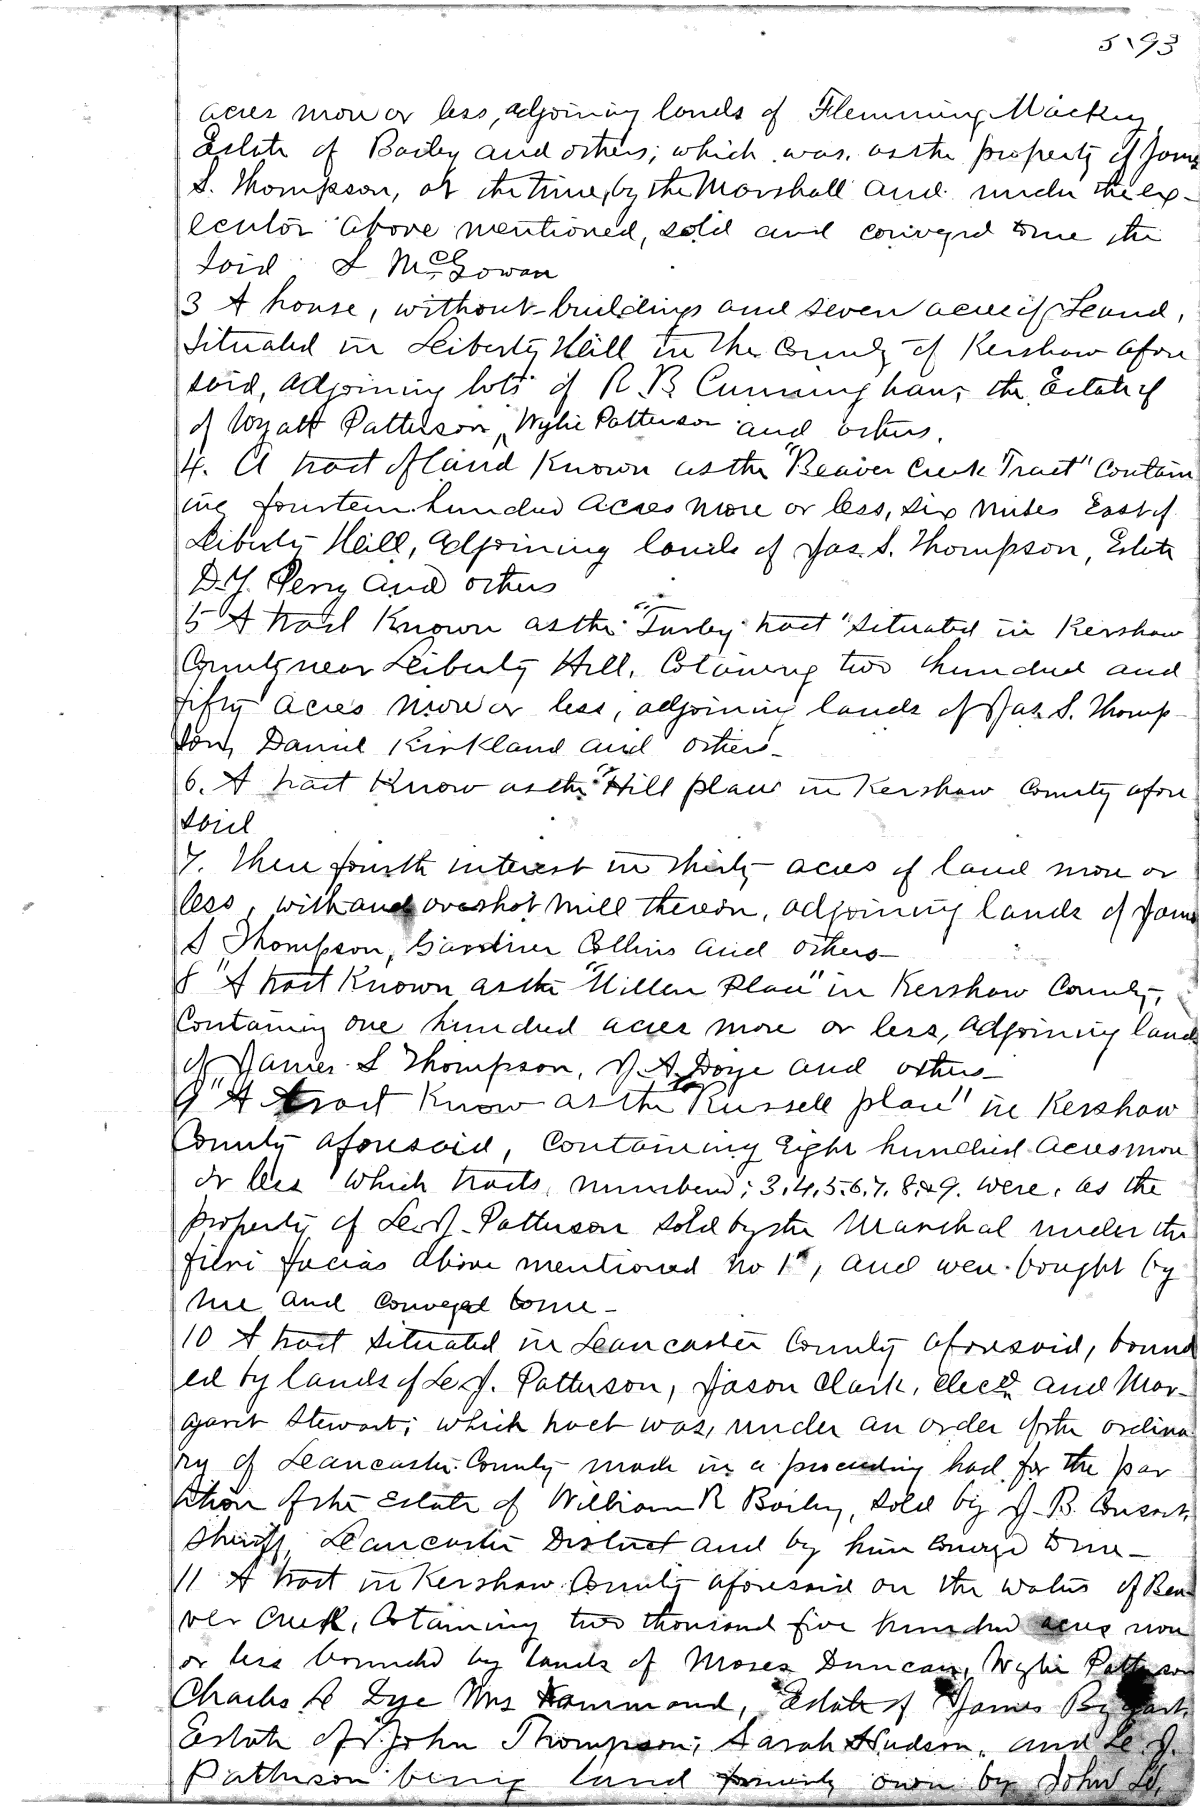 593
acres more or less, adjoining lands of Flemming Mackey
Estate of Bailey and others; which was, as the property of James
S. Thompson, at the time, by the Marshall and under the ex-
ecution above mentioned, sold and conveyed to me the
said S McGowan
3 A house, without-buildings and seven acres of Land,
situated in Liberty Hill in the County of Kershaw afore
said, adjoining lots of R. B Cunningham, the Estate of
of Wyatt Patterson, Wylie Patterson and others.
4. A tract of land Known as the "Beaver Creek Tract" contain
ing fourteen hundred acres more or less, six miles East of
Liberty Hill, adjoining lands of Jas. S. Thompson, Estate
D. Y. Perry and others
5 A tract Known as the " tract" situated in Kershaw
County near Liberty Hill, Cotaining two hundred and
fifty acres more or less, adjoining lands of Jas. S. Thomp-
son, Daniel Kirkland and others-
6. A tract Know as the "Hill place in Kershaw County afore
said
7. Three fourth interest in thirty acres of land more or
less, with and overshot mill thereon, adjoining lands of James
S Thompson, Gardiner Collins and others-
8 "A tract Known as the "Millen Place" in Kershaw County,
Containing one hundred acres more or less, adjoining lands
of James S Thompson, J. A. Doye and others-
9 "A tract Know as the "Russell place" in Kershaw
County aforesaid, containing Eight hundred acres more
or less which tracts, numbered; 3.4.5.6.7.8.&9. were, as the
property of L. J. Patterson sold by the Marshal under the
fieri facias above mentioned No 1", and were bought by
me and conveyed to me-
10 A tract situated in Lancaster County aforesaid, bound
ed by lands of L. J. Patterson, Jason Clark, decd. and Mar-
garet Stewart; which tract was, under an order of the ordina
ry of Lancaster County made in a proceeding had for the par
tition of the Estate of William R Bailey, sold by J. B. Cousart,
Sheriff, Lancaster District and by him conveye to me-
11 A tract in Kershaw County aforesaid on the waters of Bea-
ver Creek, Cotaining two thousand five hundred acres more
or less bounded by lands of Moses Duncan, Wylie Patterson
Charles L Dye Mrs Hammond, Estate of James
Estate of John Thompson; Sarah Hudson, and L. J.
Patterson being land formerly own by John D,